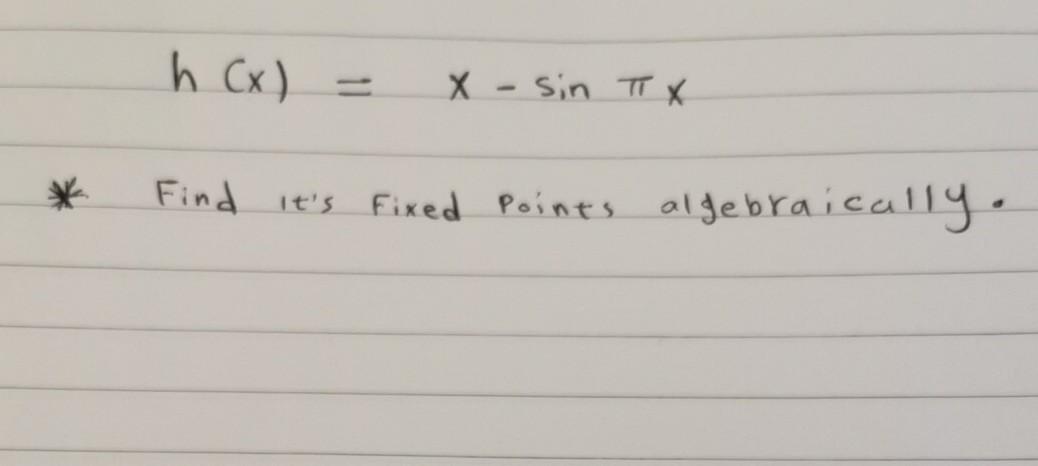 h (x) = x - sin π x
* Find it's fixed points algebraically.